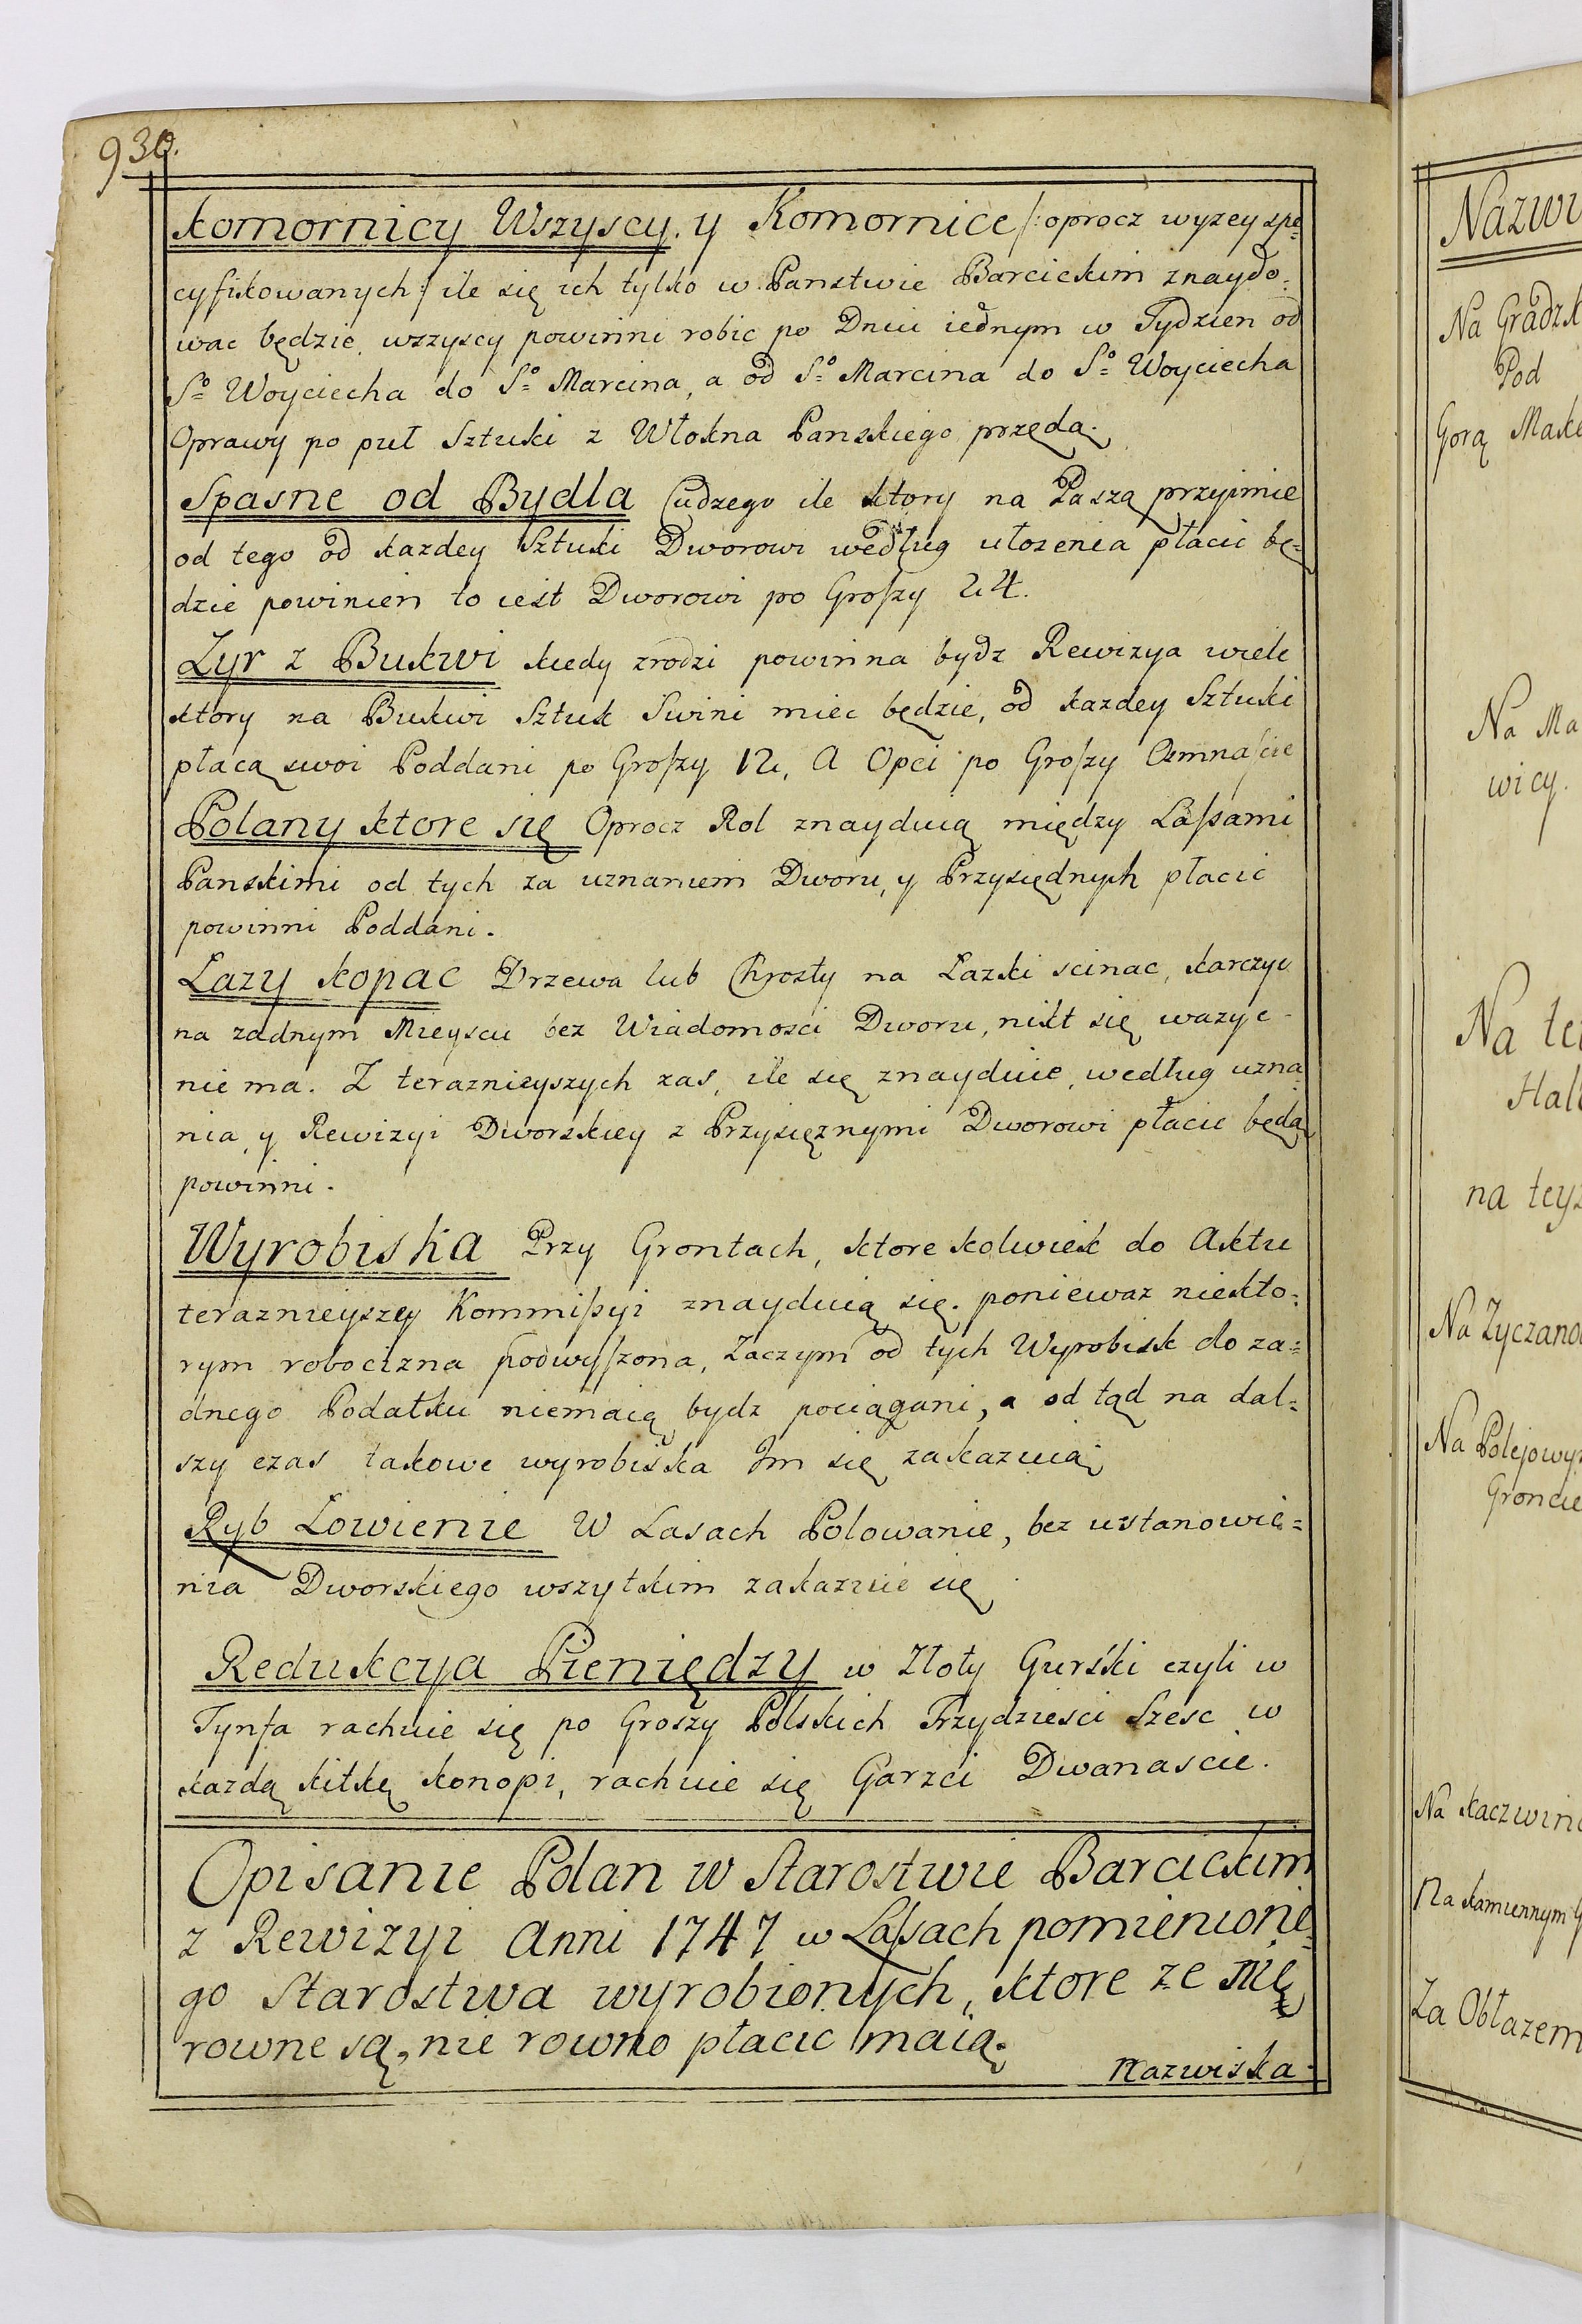 930.
Komornicy Wszyscy. y Komornice /: oprocz wyzey spe=
cyfikowanych :/ ile się ich tylko w Panstwie Barcickim znaydo=
wac będzie, wszyscy powinni robic po Dniu iednym w Tydzien od
Sº Woyciecha do Sº Marcina, a od Sº Marcina do Sº Woyciecha
Oprawy po puł Sztuki z Włokna Panskiego przędą.
Spasne od Bydla Cudzego ile ktory na Paszą przyimie
od tego od kazdey Sztuki Dworowi według ułozenia płacic bę=
dzie powinien to iest Dworowi po Groszy 24.
Zyr z Bukwi kiedy zrodzi powinna bydz Rewizya wiele
ktory na Bukwi Sztuk Swini miec będzie, od kazdey Sztuki
płacą swoi Poddani po Groszy 12, A Opci po Groszy Osmnascie
Polany ktore się Oprocz Rol znayduią między Lassami
Panskimi od tych za uznaniem Dworu, y Przysiędnych płacic
powinni Poddani.
Łazy kopac Drzewa lub Chrosty na Łazki scinac, karczyc
na zadnym Mieyscu bez Wiadomosci Dworu, nikt się wazyc
nie ma. Z teraznieyszych zas, ile się znayduie, według uzna=
nia, y Rewizyi Dworskiey z Przysięznymi Dworowi płacic będą
powinni.
Wyrobiska Przy Grontach, ktore kolwiek do Aktu
teraznieyszey Kommissyi znayduią się. poniewaz niekto=
rym robocizna podwyszona, Zaczym od tych Wyrobisk do za=
dnego Podatku niemaią bydz pociągani, a od tąd na dal=
szy czas takowe wyrobiska Im się zakazuią
Ryb Łowienie W Lasach Polowanie, bez ustanowie=
nia Dworskiego wszytkim zakazuie się
Redukcya Pieniędzy w Złoty Gurski czyli w
Tynfa rachuie się po Groszy Polskich Trzydziesci Szesc w
kazdą kitkę konopi, rachuie się Garzci Dwanascie.
Opisanie Polan w Starostwie Barcickim
z Rewizyi Anni 1747 w Lassach pomienione=
go Starostwa wyrobionych, ktore ze nie
rowne są, nie rowno płacic maią.
Nazwiska
Na Gradzk
Pod
Gorą
Na
wicy.
Na
na teyz
Na
Na Polejowym
Groncie
Na
Na kamiennym
Za Obłazem